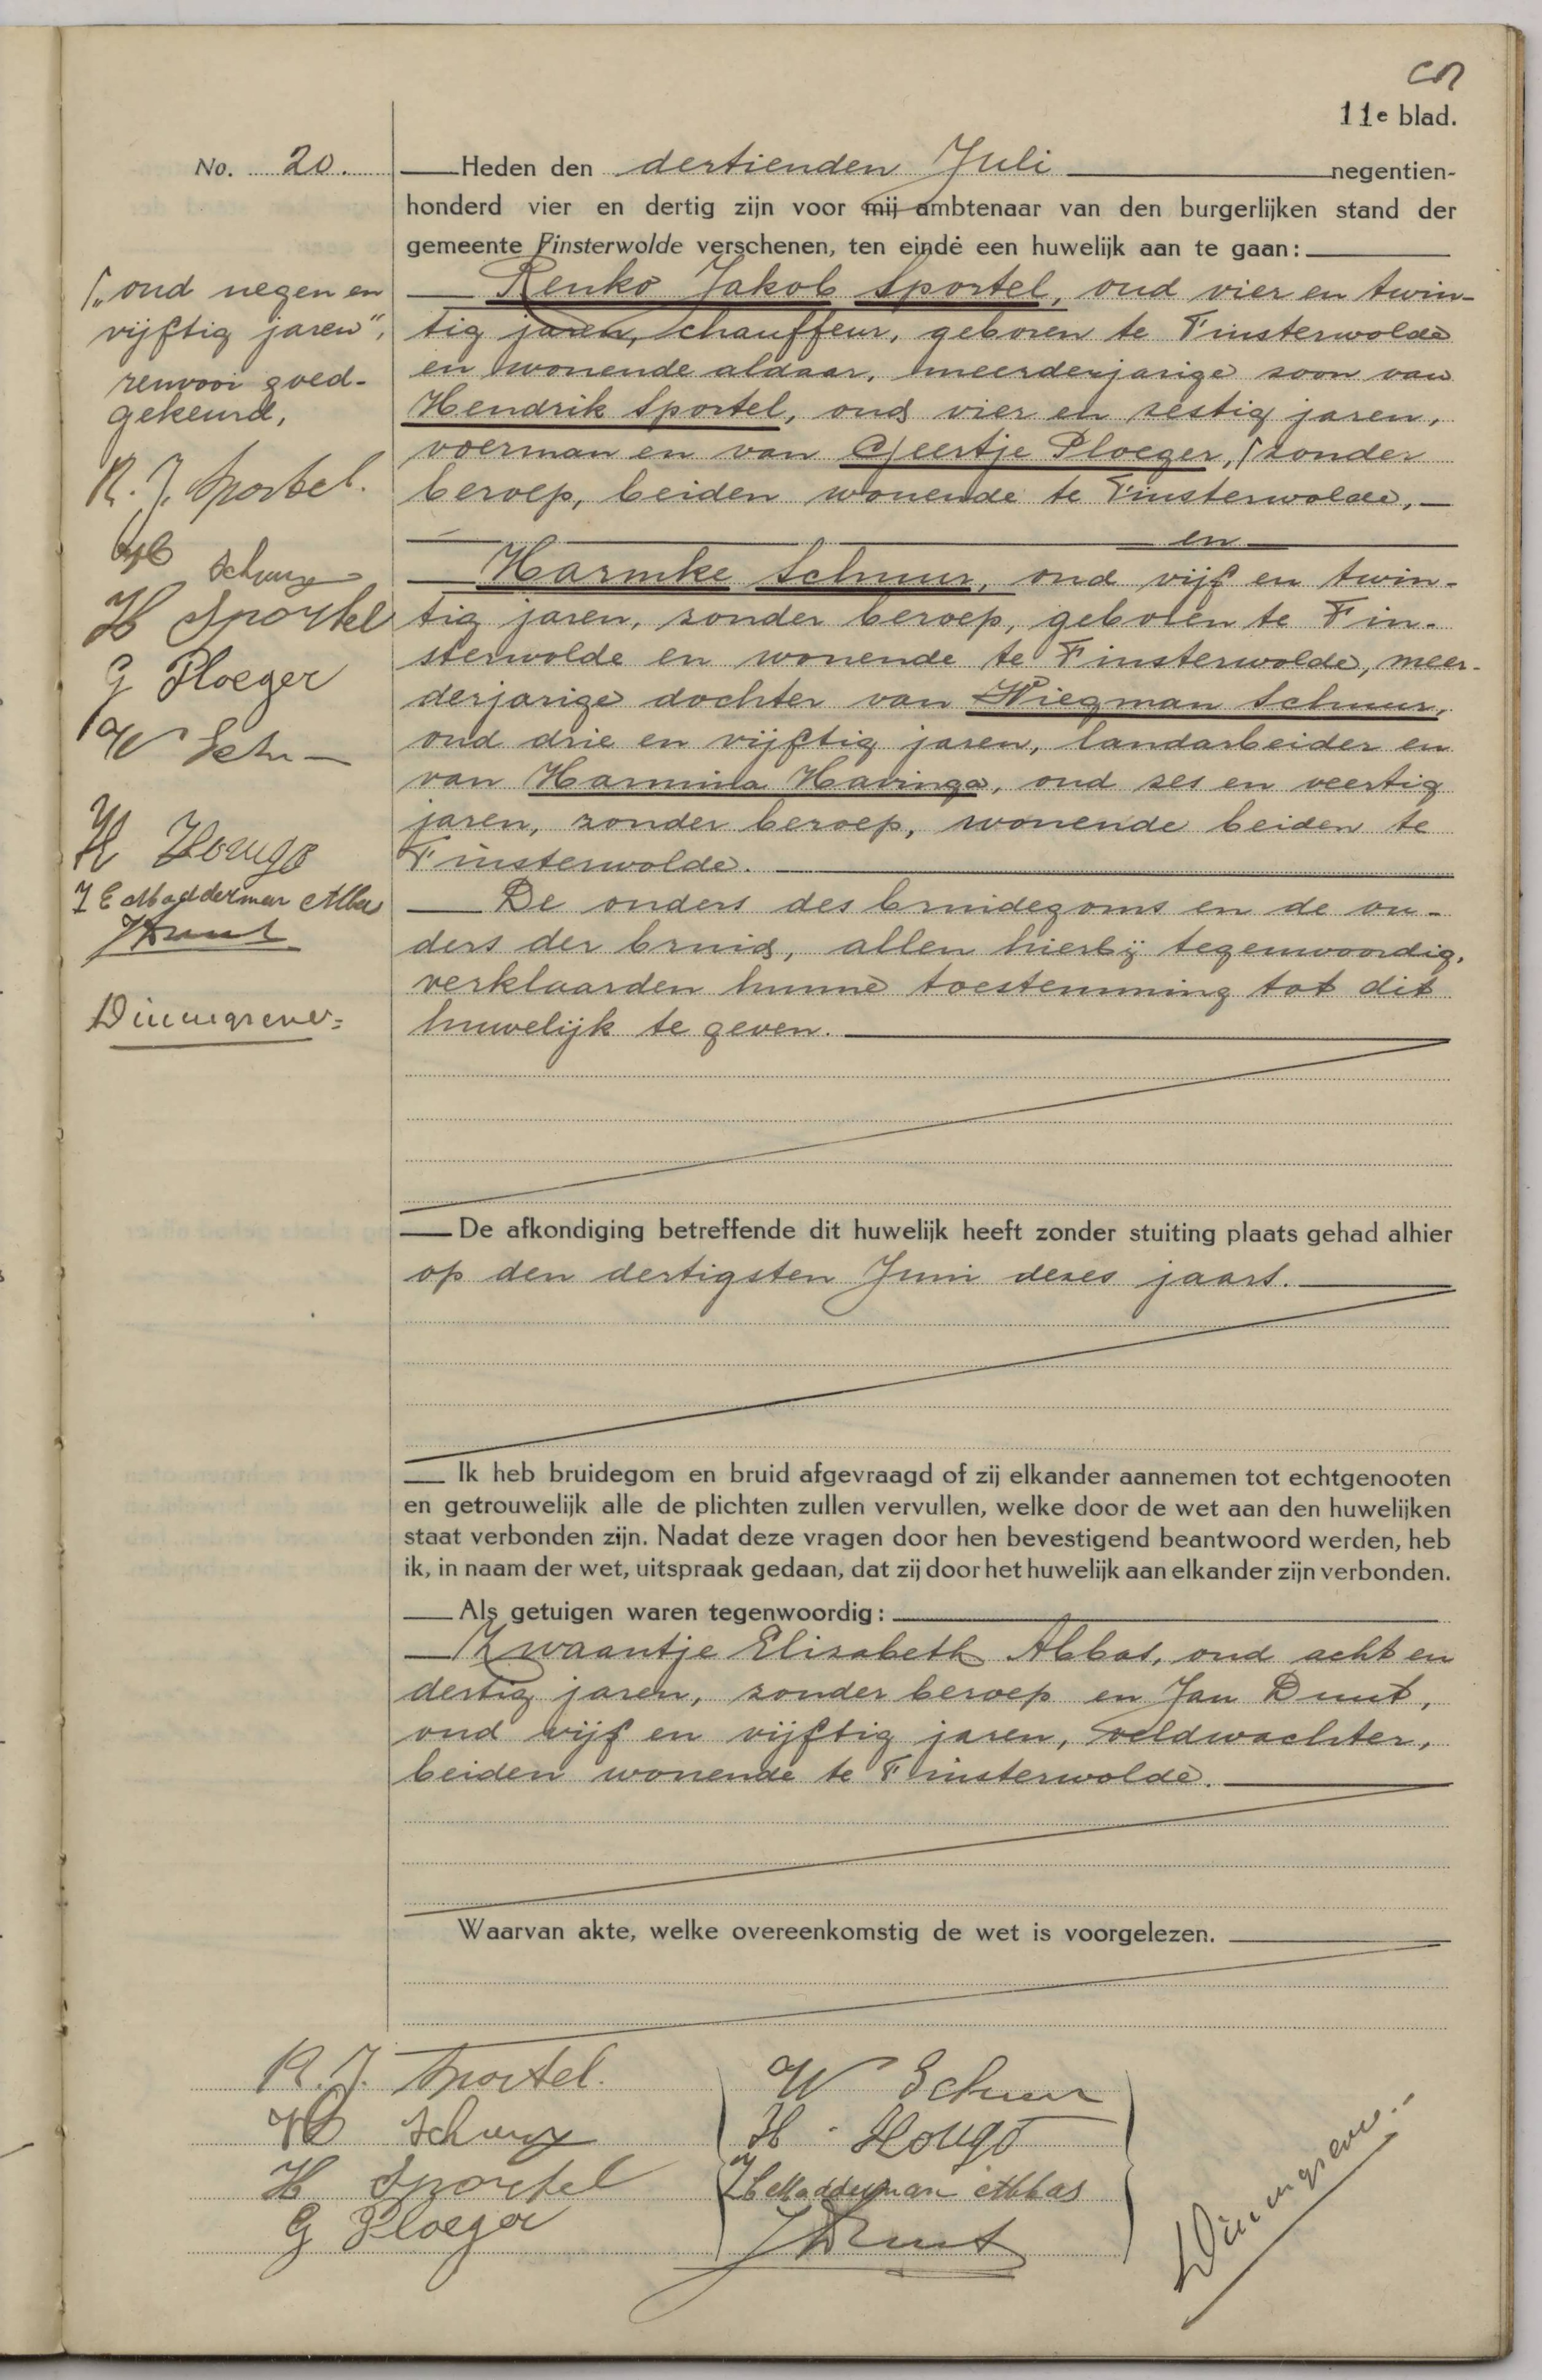 11e blad.
No. 20.
Heden den dertienden Juli negentien-
honderd vier en dertig zijn voor mij ambtenaar van den burgerlijken stand der
gemeente Finsterwolde verschenen, ten einde een huwelijk aan te gaan:
Renko Jakob Sportel, oud vier en twin-
tig jaren, chauffeur, geboren te Finsterwolde
en wonende aldaar, meerderjarige zoon van
Hendrik Sportel, oud vier en zestig jaren,
voerman en van Geertje Ploeger, ⌈zonder
beroep, beiden wonende te Finsterwolde,
en
Harmke Schuur, oud vijf en twin-
tig jaren, zonder beroep, geboren te Fin-
sterwolde en wonende te Finsterwolde, meer-
derjarige dochter van Wiegman Schuur,
oud drie en vijftig jaren, landarbeider en
van Harmina Havinga, oud zes en veertig
jaren, zonder beroep, wonende beiden te
Finsterwolde.
De ouders des bruidegoms en de ou-
ders der bruid, allen hierbij tegenwoordig,
verklaarden hunne toestemming tot dit
huwelijk te geven.
De afkondiging betreffende dit huwelijk heeft zonder stuiting plaats gehad alhier
op den dertigsten Juni dezes jaars.
Ik heb bruidegom en bruid afgevraagd of zij elkander aannemen tot echtgenooten
en getrouwelijk alle de plichten zullen vervullen, welke door de wet aan den huwelijken
staat verbonden zijn. Nadat deze vragen door hen bevestigend beantwoord werden, heb
ik, in naam der wet, uitspraak gedaan, dat zij door het huwelijk aan elkander zijn verbonden.
Als getuigen waren tegenwoordig:
Zwaantje Elizabeth Abbas, oud acht en
dertig jaren, zonder beroep en Jan Drent,
oud vijf en vijftig jaren, veldwachter,
beiden wonende te Finsterwolde.
Waarvan akte, welke overeenkomstig de wet is voorgelezen.
⌈„oud negen en
vijftig jaren",
renvooi goed-
gekeurd,
R. J. Sportel.
H Schuur
H Sportel
G Ploeger
W Schu
H
Z E Maddermar Abbas
JDrent
R. J. Sportel.
H Schuur
H Sportel
G Ploeger
W Schuur
H
Z E Madderman Abbas
JDrent